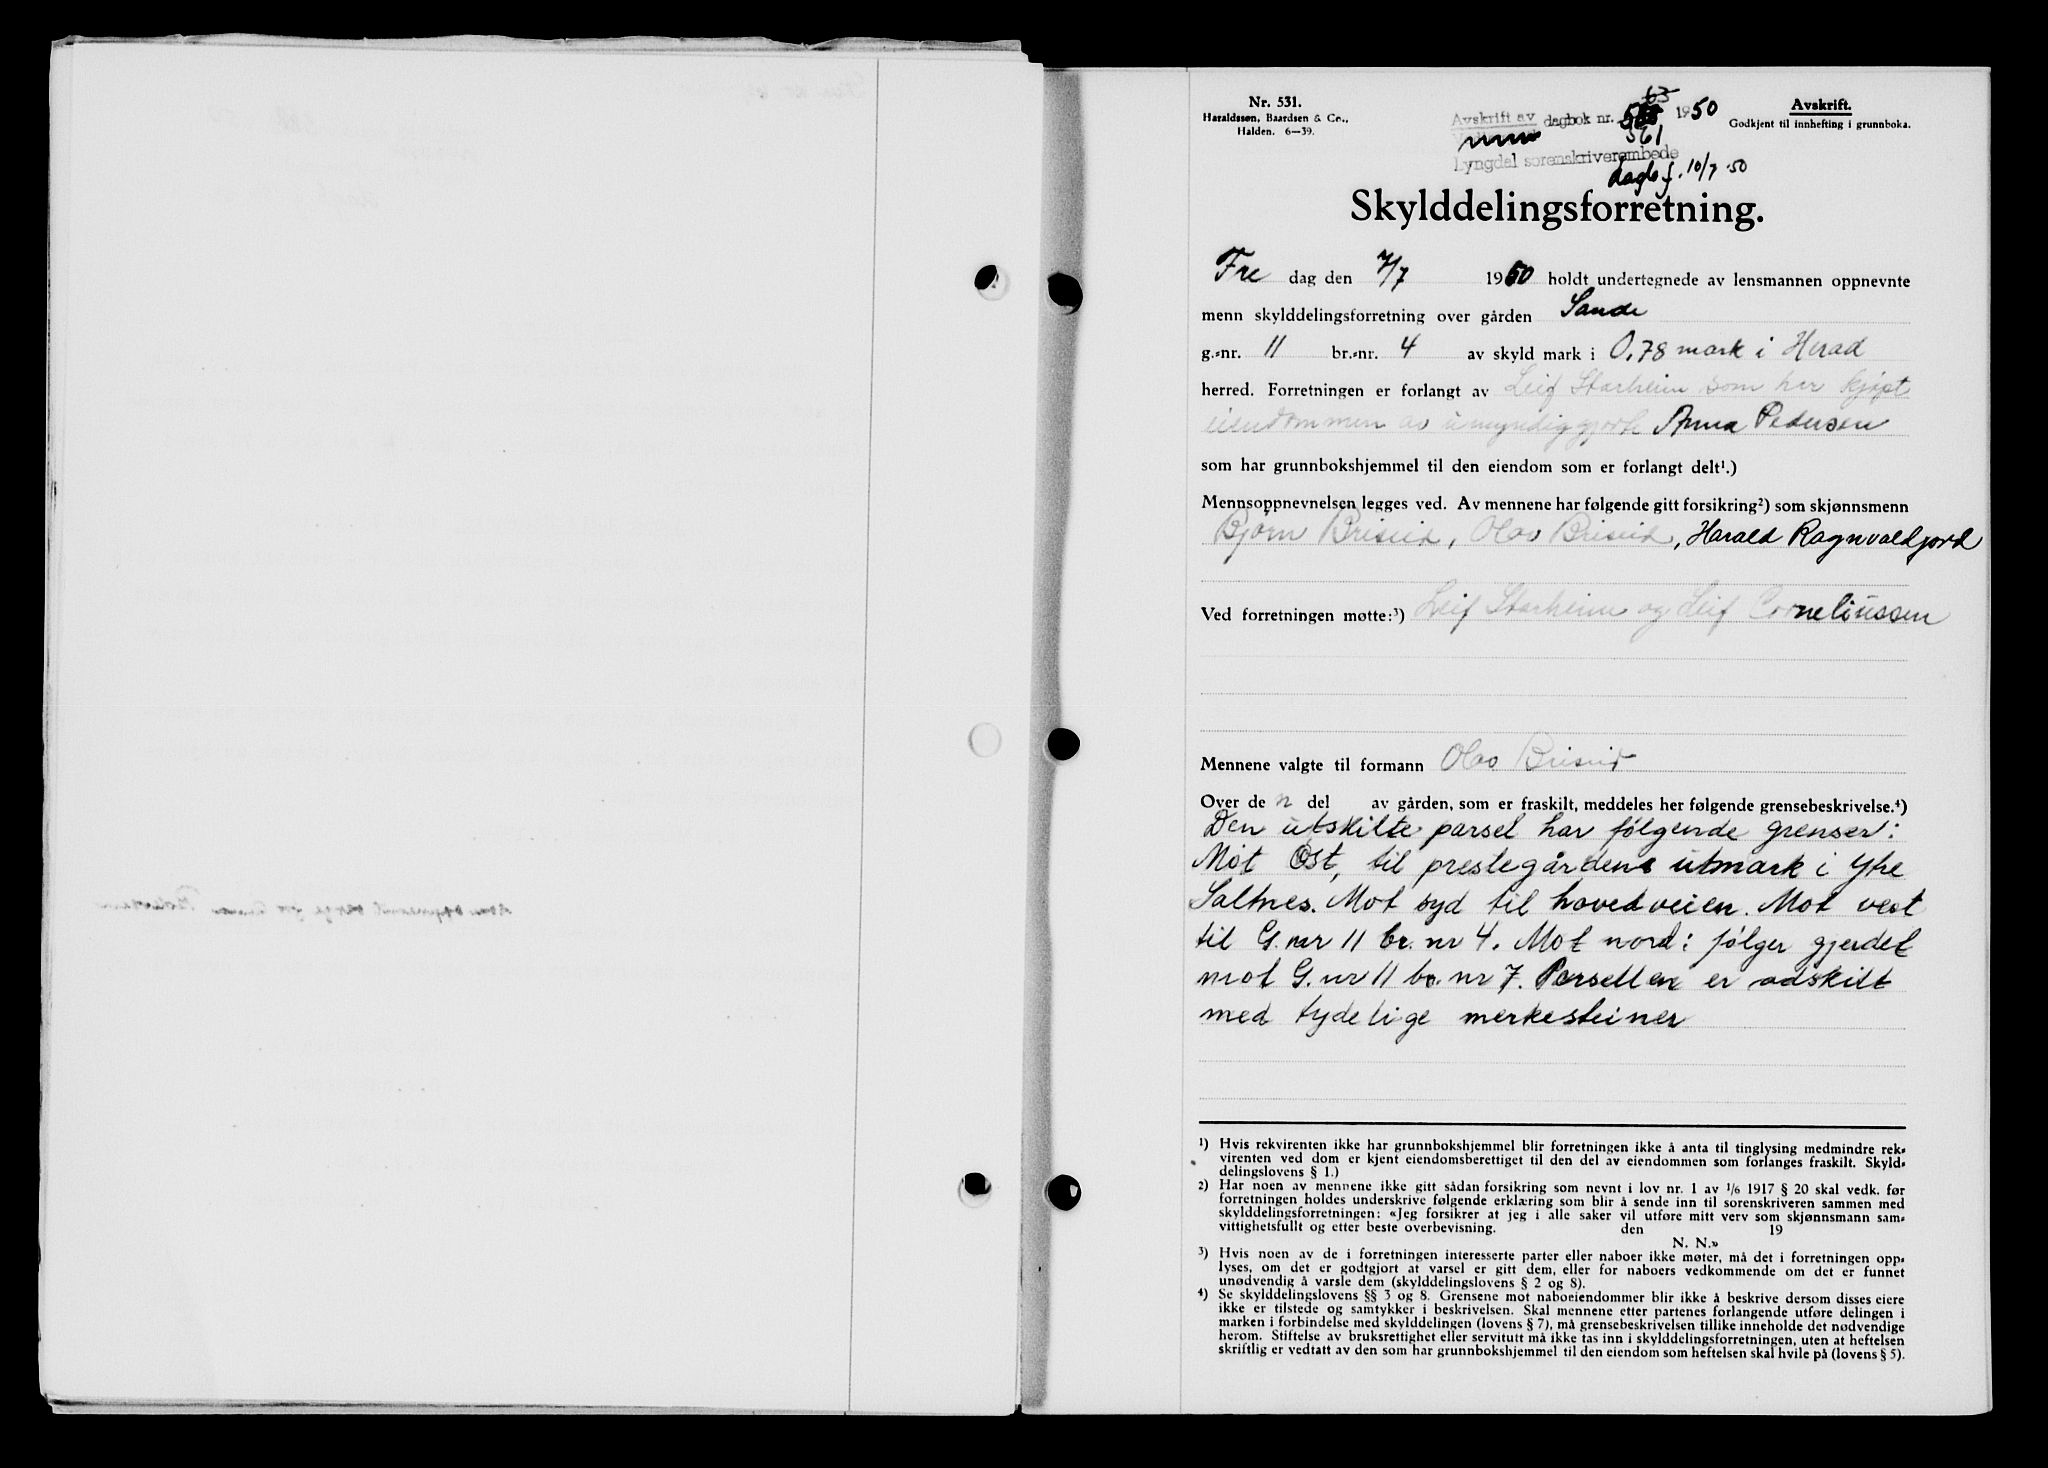 Nr. 531.
Haraldssøn, Baardsen & Co.,
Halden. 6—39.
Avskrift av dagbok nr. 561 1950
Lyngdal sorenskriverembede
dagb f. 10/7 50
Avskrift.
Godkjent til innhefting i grunnboka.
Skylddelingsforretning.
Fre dag den 7/7 1950 holdt undertegnede av lensmannen oppnevnte
menn skylddelingsforretning over gården Sande
g.-nr. 11 br.-nr. 4 av skyld mark i 0,78 mark i Herad
herred. Forretningen er forlangt av Leif Starheim som har kjøpt
eiendommen av umyndiggjorte Anna Pedersen
som har grunnbokshjemmel til den eiendom som er forlangt delt¹.)
Mennsoppnevnelsen legges ved. Av mennene har følgende gitt forsikring²) som skjønnsmenn
Bjørn Briseid, Olav Briseid, Harald Ragnvaldjord
Ved forretningen møtte:³) Leif Starheim og Leif Corneliussen
Mennene valgte til formann Olav Briseid
Over de n del av gården, som er fraskilt, meddeles her følgende grensebeskrivelse.⁴)
Den utskilte parsel har følgende grenser:
Mot Øst, til prestegårdens utmark i ytre
Saltnes. Mot syd til hovedveien. Mot vest
til G. nr 11 br. nr 4. Mot nord: følger gjerdet
mot G. nr 11 br. nr 7. Parsellen er adskilt
med tydelige merkesteiner
¹) Hvis rekvirenten ikke har grunnbokshjemmel blir forretningen ikke å anta til tinglysing medmindre rek-
virenten ved dom er kjent eiendomsberettiget til den del av eiendommen som forlanges fraskilt. Skyld-
delingslovens § 1.)
²) Har noen av mennene ikke gitt sådan forsikring som nevnt i lov nr. 1 av 1/6 1917 § 20 skal vedk. før
forretningen holdes underskrive følgende erklæring som blir å sende inn til sorenskriveren sammen med
skylddelingsforretningen: «Jeg forsikrer at jeg i alle saker vil utføre mitt verv som skjønnsmann sam-
vittighetsfullt og etter beste overbevisning. den 19
N. N.»
³) Hvis noen av de i forretningen interesserte parter eller naboer ikke møter, må det i forretningen opp-
lyses, om det er godtgjort at varsel er gitt dem, eller for naboers vedkommende om det er funnet
unødvendig å varsle dem (skylddelingslovens § 2 og 8).
⁴) Se skylddelingslovens §§ 3 og 8. Grensene mot naboeiendommer blir ikke å beskrive dersom disses eiere
ikke er tilstede og samtykker i beskrivelsen. Skal mennene etter partenes forlangende utføre delingen i
marken i forbindelse med skylddelingen (lovens § 7), må grensebeskrivelsen tillike inneholde det nødvendige
herom. Stiftelse av bruksrettighet eller servitutt må ikke tas inn i skylddelingsforretningen, uten at heftelsen
skriftlig er vedtatt av den som har grunnbokshjemmel til den eiendom som heftelsen skal hvile på (lovens § 5).